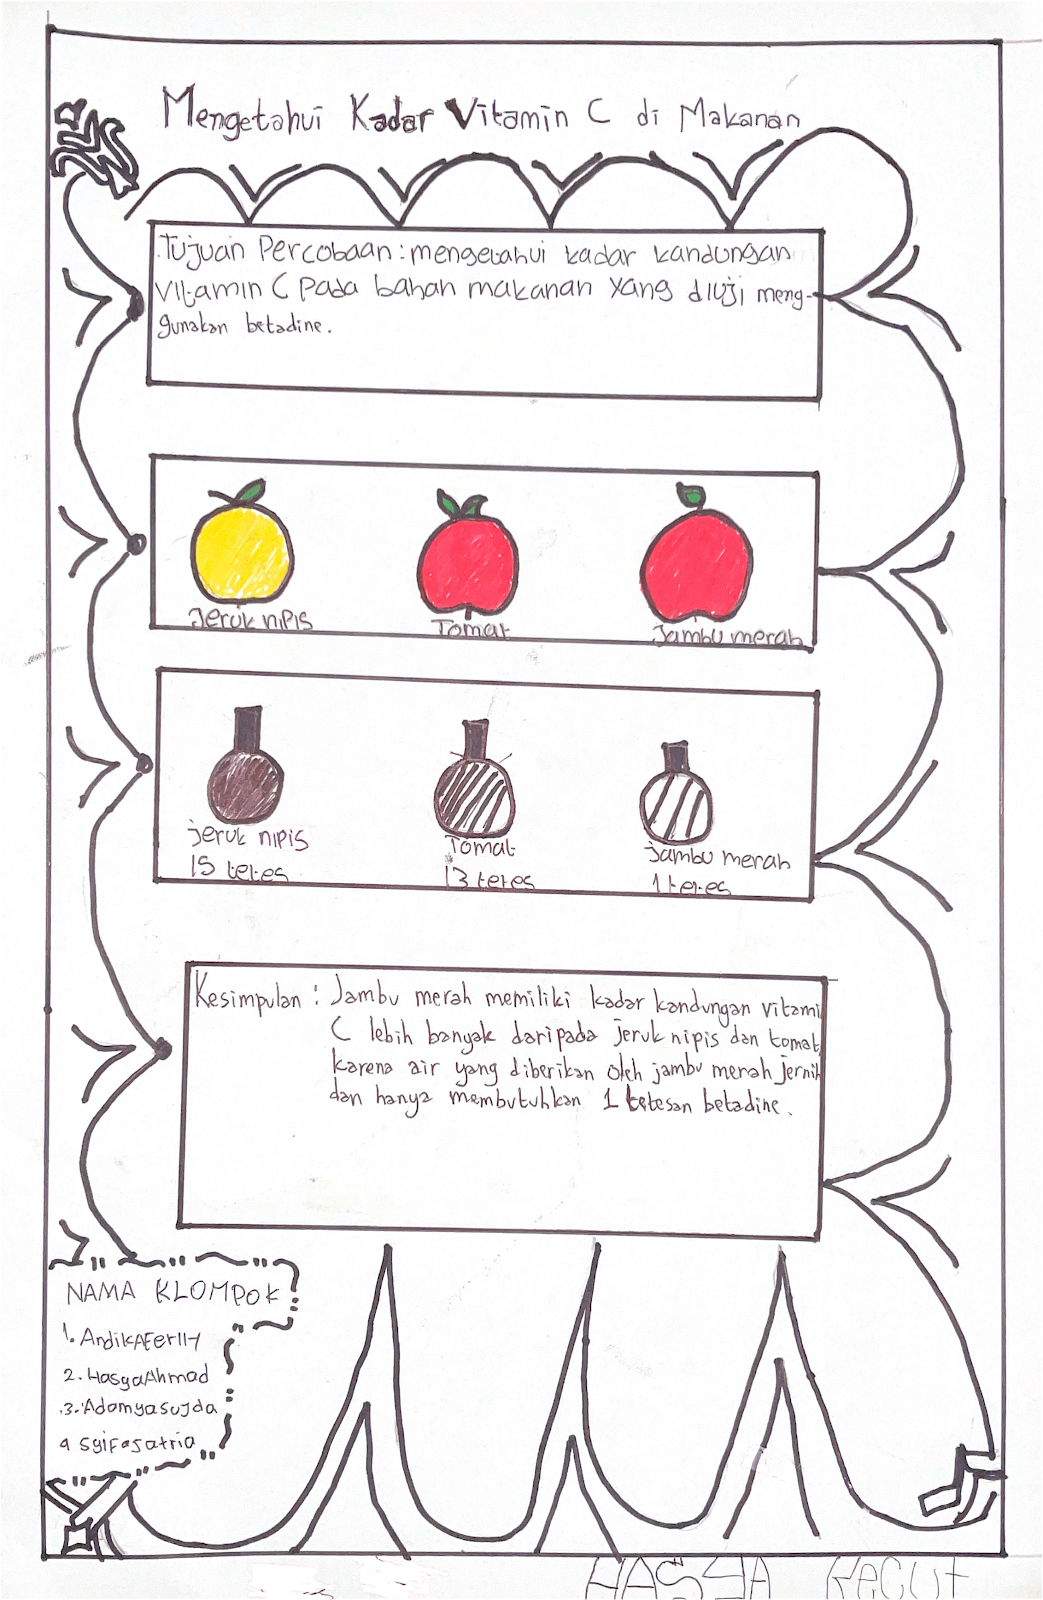 Mengetahui Kadar Vitamin C di Makanan
Tujuan Percobaan : mengetahui kadar kandungan
Vitamin C Pada bahan makanan yang diuji meng-
gunakan betadine.
Jeruk nipis
Tomat
Jambu merah
jeruk nipis
15 tetes
Tomat
13 tetes
jambu merah
1 tetes
Kesimpulan : Jambu merah memiliki kadar kandungan vitami
C lebih banyak daripada jeruk nipis dan tomat,
karena air yang diberikan oleh jambu merah jernih
dan hanya membutuhkan 1 tetesan betadine.
NAMA KLOMPOK
1.
2. Hasya Ahmad
3. Adamyasujda
4 Syifasatria
HASYA